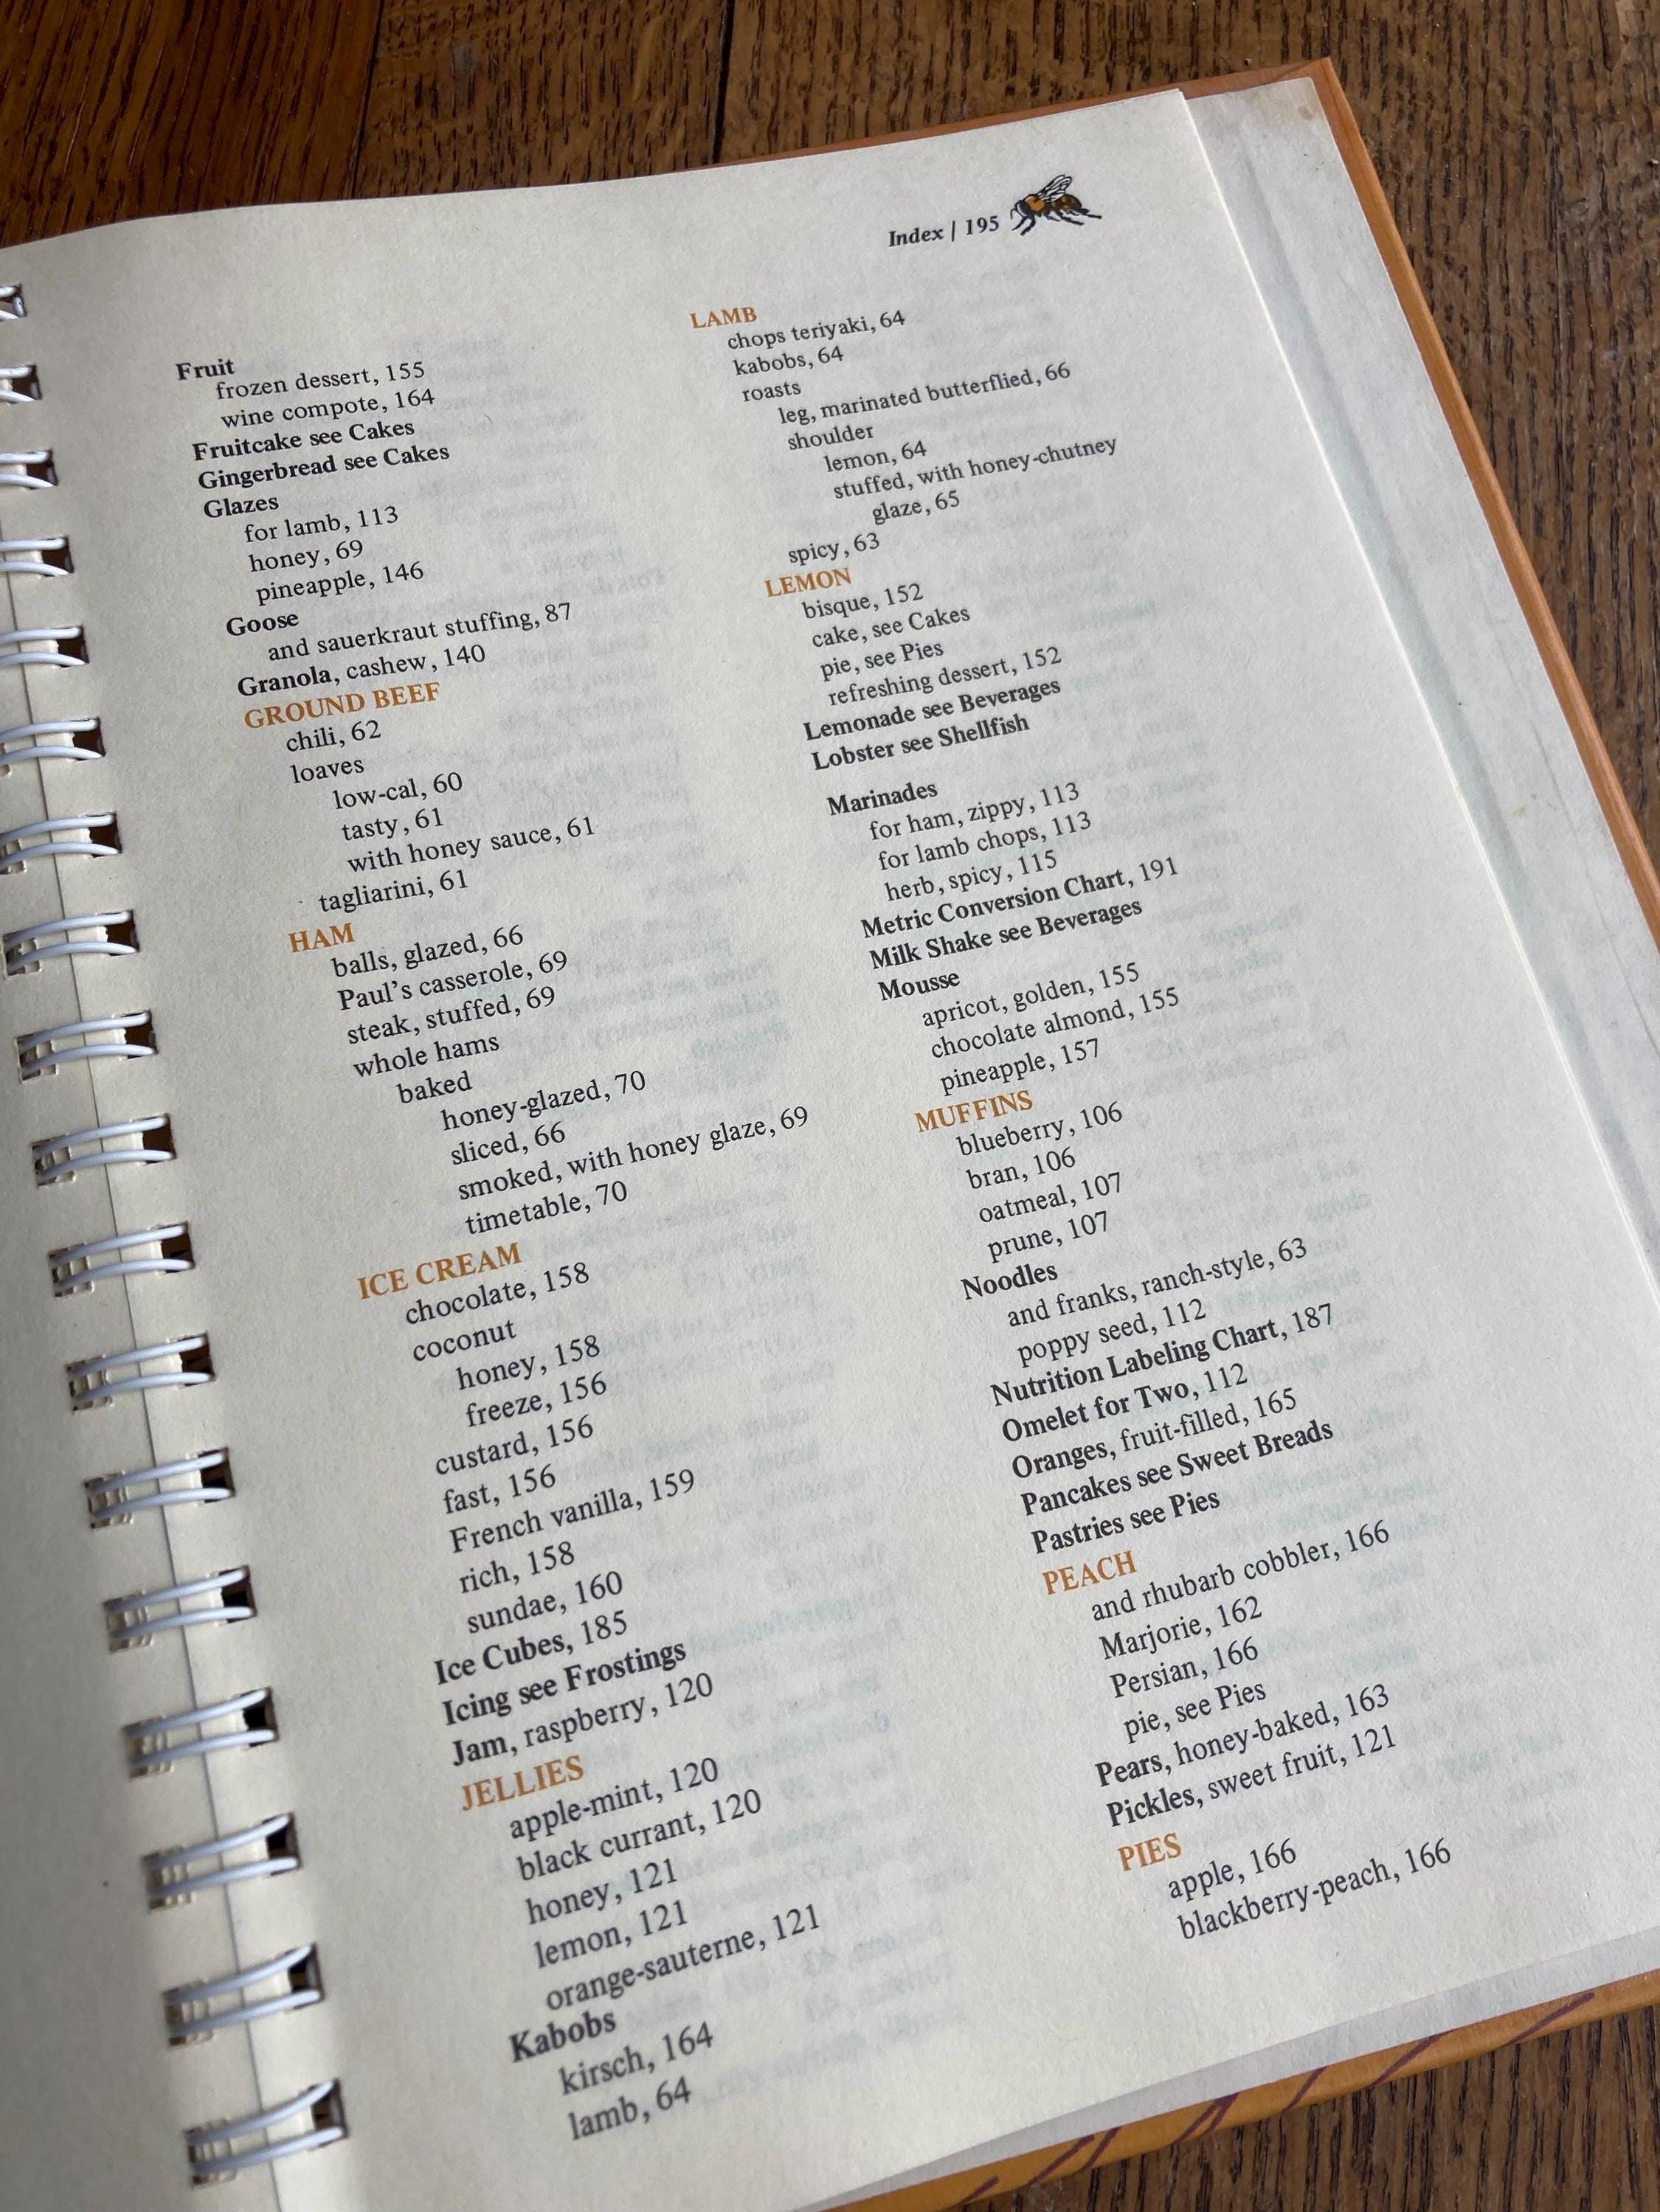 Index | 195
Fruit
frozen dessert, 155
wine compote, 164
Fruitcake see Cakes
Gingerbread see Cakes
Glazes
for lamb, 113
honey, 69
pineapple, 146
Goose
and sauerkraut stuffing, 87
Granola, cashew, 140
GROUND BEEF
chili, 62
loaves
low-cal, 60
tasty, 61
with honey sauce, 61
tagliarini, 61
HAM
balls, glazed, 66
Paul's casserole, 69
steak, stuffed, 69
whole hams
baked
honey-glazed, 70
sliced, 66
smoked, with honey glaze, 69
timetable, 70
ICE CREAM
chocolate, 158
coconut
honey, 158
freeze, 156
custard, 156
fast, 156
French vanilla, 159
rich, 158
sundae, 160
Ice Cubes, 185
Icing see Frostings
Jam, raspberry, 120
JELLIES
apple-mint, 120
black currant, 120
honey, 121
lemon, 121
orange-sauterne, 121
Kabobs
kirsch, 164
lamb, 64
LAMB
chops teriyaki, 64
kabobs, 64
roasts
leg, marinated butterflied, 66
shoulder
lemon, 64
stuffed, with honey-chutney
glaze, 65
spicy, 63
LEMON
bisque, 152
cake, see Cakes
pie, see Pies
refreshing dessert, 152
Lemonade see Beverages
Lobster see Shellfish
Marinades
for ham, zippy, 113
for lamb chops, 113
herb, spicy, 115
Metric Conversion Chart, 191
Milk Shake see Beverages
Mousse
apricot, golden, 155
chocolate almond, 155
pineapple, 157
MUFFINS
blueberry, 106
bran, 106
oatmeal, 107
prune, 107
Noodles
and franks, ranch-style, 63
poppy seed, 112
Nutrition Labeling Chart, 187
Omelet for Two, 112
Oranges, fruit-filled, 165
Pancakes see Sweet Breads
Pastries see Pies
PEACH
and rhubarb cobbler, 166
Marjorie, 162
Persian, 166
pie, see Pies
Pears, honey-baked, 163
Pickles, sweet fruit, 121
PIES
apple, 166
blackberry-peach, 166